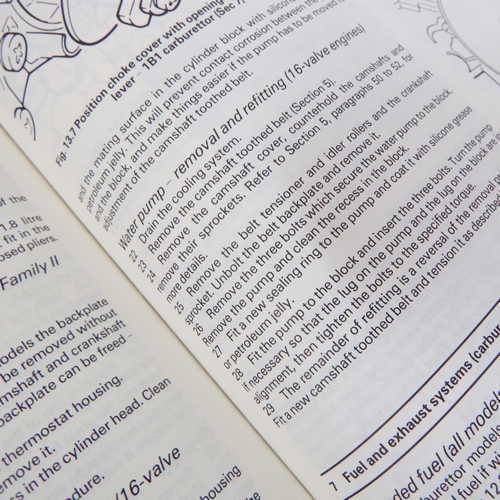 1.8 litre
fit in the
osed pliers.
Family II
odels the backplate
be removed without
mshaft and crankshaft
backplate can be freed -
thermostat housing.
move it.
s in the cylinder head. Clean
edure.
(16-valve
housing
Fig. 13.7 Position choke cover with opening
lever - 1B1 carburettor (Sec 7)
and the mating surface in the cylinder block with silicone
petroleum jelly. This will prevent contact corrosion between the
and the block, and make things easier if the pump has to be moved
adjustment of the camshaft toothed belt.
Water pump - removal and refitting (16-valve engines)
22 Drain the cooling system.
23 Remove the camshaft toothed belt (Section 5).
24 Remove the camshaft cover, counterhold the camshafts and
remove their sprockets. Refer to Section 5, paragraphs 50 to 52, for
more details.
25 Remove the belt tensioner and idler rollers and the crankshaft
sprocket. Unbolt the belt backplate and remove it.
26 Remove the three bolts which secure the water pump to the block.
Remove the pump and clean the recess in the block.
27 Fit a new sealing ring to the pump and coat it with silicone grease
or petroleum jelly.
28 Fit the pump to the block and insert the three bolts. Turn the pump
if necessary so that the lug on the pump and the lug on the block are
alignment, then tighten the bolts to the specified torque.
29 The remainder of refitting is a reversal of the removal
Fit a new camshaft toothed belt and tension it as described
7 Fuel and exhaust systems (carbu
ded fuel (all models
rettor models
fuel if